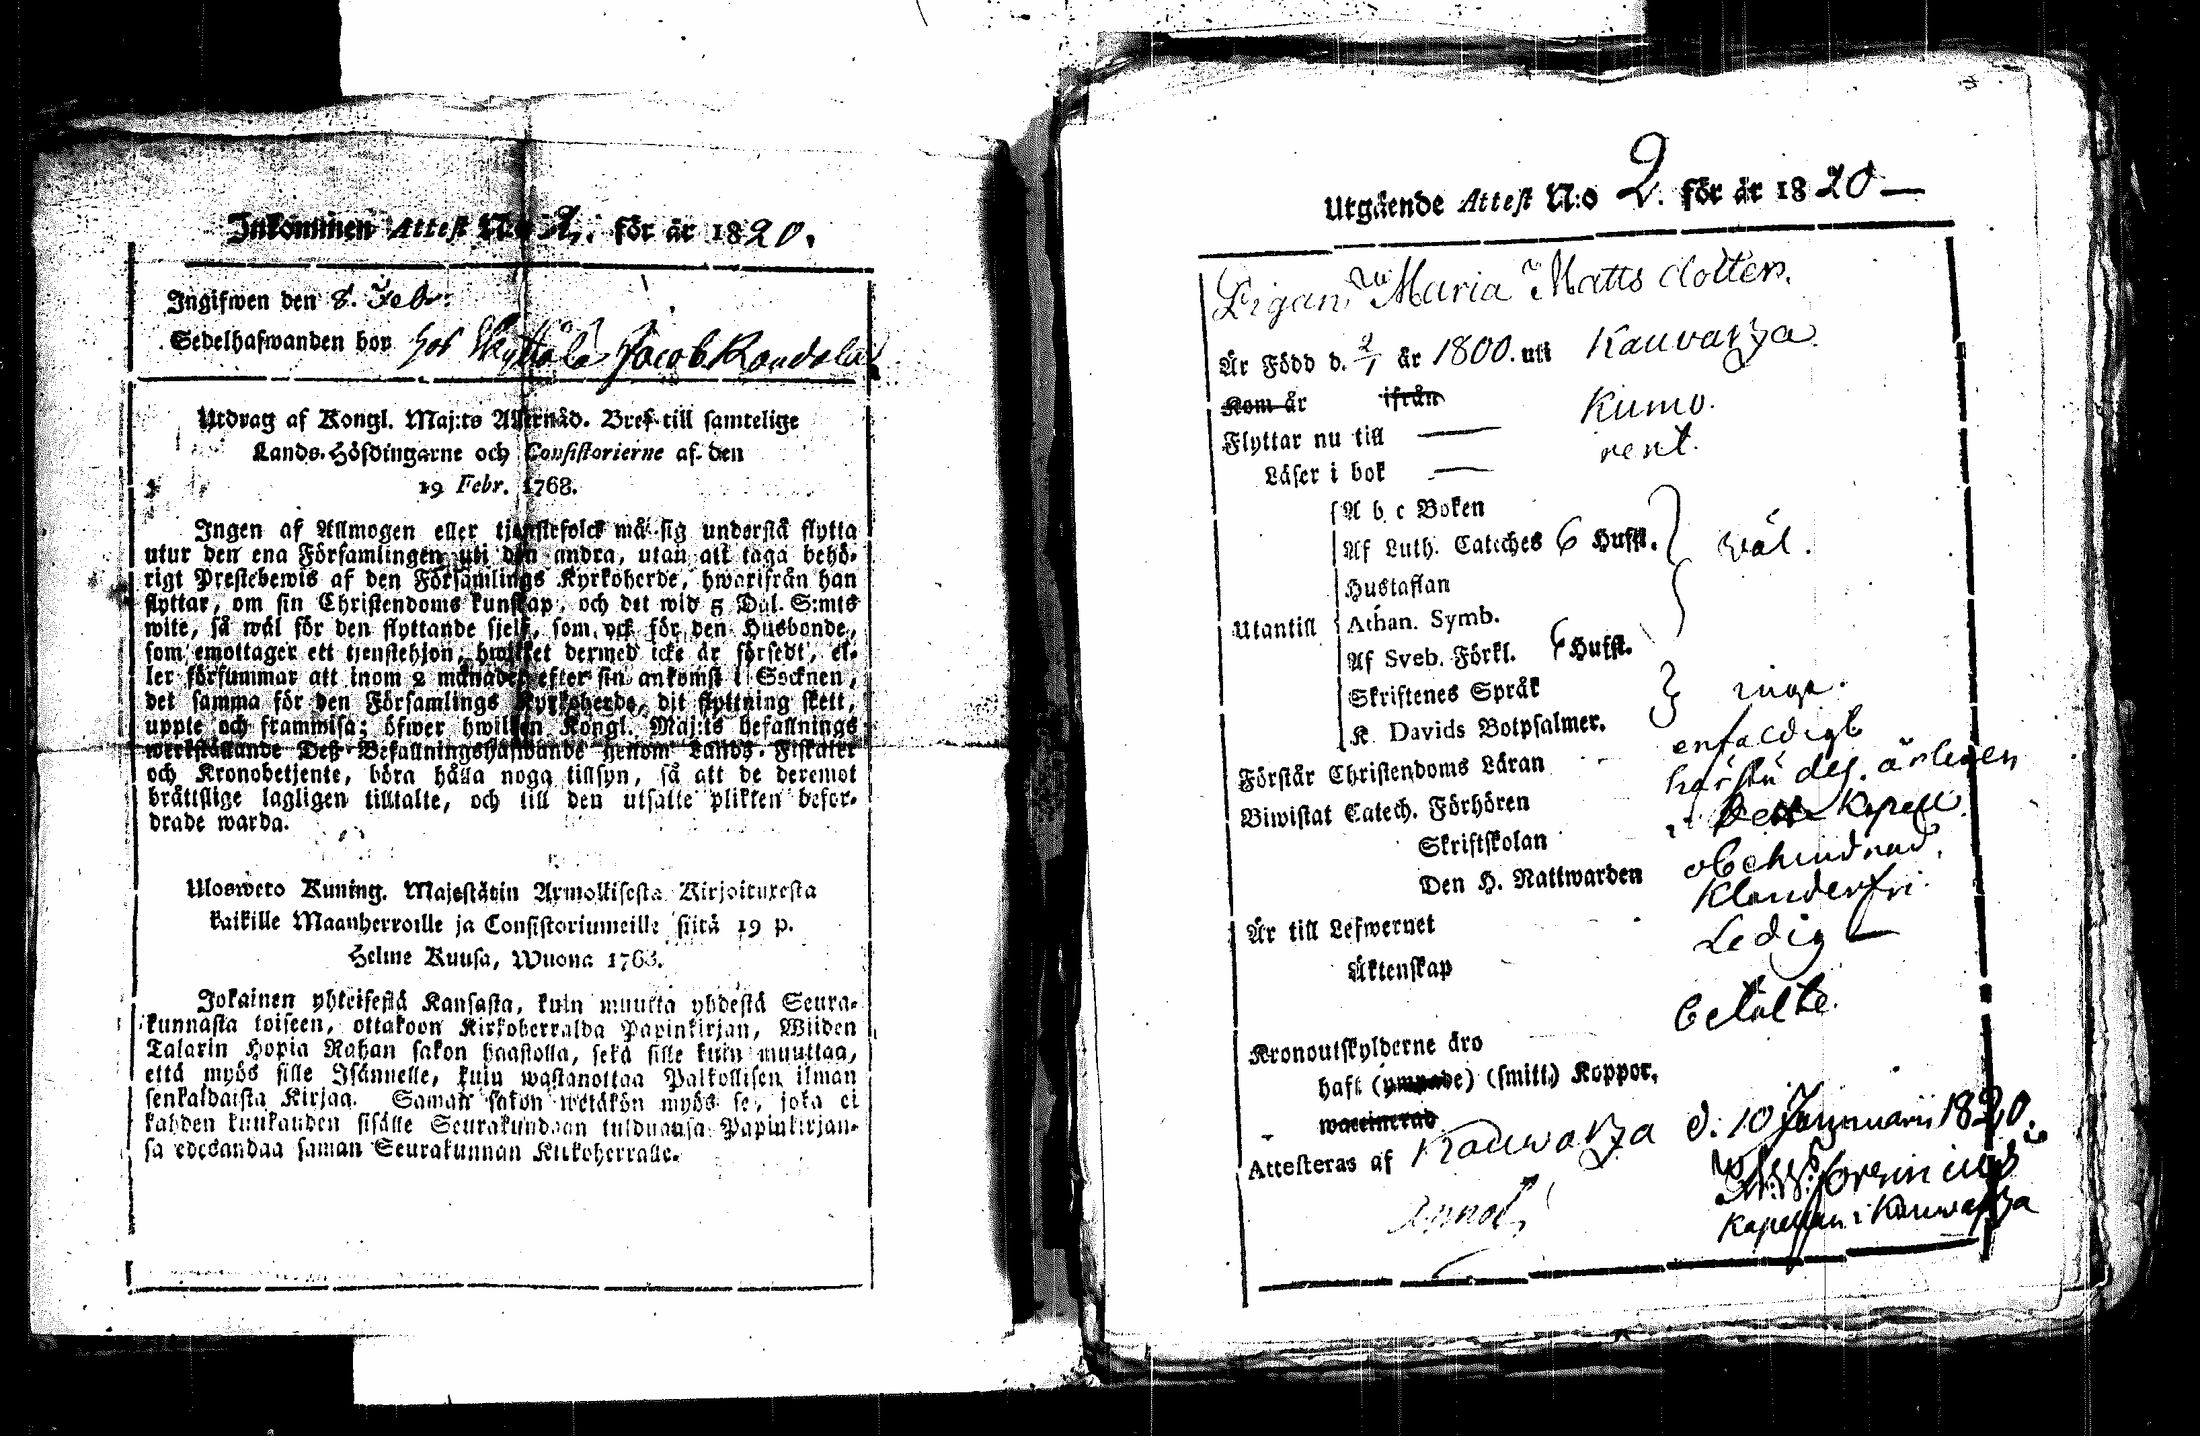 Inkommen Attest N:o 2. för år 1820.
Ingifwen den 8. Febr.
Sedelhafwanden bor hos Jacob
Utdrag af Kongl. Maj:ts Allernåd. Bref till samtelige
Lands-Höfdingarne och Consistorierne af den
19 Febr. 1768.
Ingen af Allmogen eller tjenstefolck må sig understå flytta
utur den ena Församlingen uti den andra, utan att taga behö-
rigt Prestebewis af den Församlings Kyrkoherde, hwarifrån han
flyttar, om sin Christendoms kunskap, och det wid 5 Dal. S:mts
wite, så wäl för den flyttande sjelf, som ock för den Husbonde,
som emottager ett tjenstehjon, hwilket dermed icke är försedt, el-
ler försummar att inom 2 månader efter sin ankomst i Socknen,
det samma för den Församlings Kyrkoherde, dit flyttning skett,
uppte och frammisa; öfwer hwilken Kongl. Maj:ts befallnings
werkställande Deß Befallningshafwande genom Lands-Fiskaler
och Kronobetjente, böra hålla noga tillsyn, så att de deremot
bråttslige lagligen tilltalte, och till den utsatte plikten befor-
drade warda.
Ulosweto Kuning. Majestätin Armollisesta Kirjoituxesta
kaikille Maanherroille ja Consistoriumeille siitä 19 p.
Helme Kuusa, Wuona 1768.
Jokainen yhteisestä Kansasta, kuin muutta yhdestä Seura-
kunnasta toiseen, ottakoon Kirkoherralda Papinkirjan, Wiiden
Talarin Hopia Rahan sakon haastolla, sekä sille kuin muuttaa,
että myös sille Isännelle, kuin wastanottaa Palkollisen ilman
senkaldaista Kirjaa. Saman sakon wetäkön myös se, joka ei
kahden kuukauden sisälle Seurakundaan tulduansa Papinkirjan-
sa edesandaa saman Seurakunnan Kirkoherralle.
Utgående Attest N:o 2. för år 1820
Pigan Maria Matts dotter.
Är Född d. 2/1 år 1800. uti Kauvatza
Kom år ifrån
Flyttar nu till Kumo.
Läser i bok rent.
A b c Boken
Af Luth. Cateches 6 Hufst. wäl.
Hustaflan
Utantill Athan. Symb.
Af Sveb. Förkl. 6 Hufst.
Skriftenes Språk inga.
K. Davids Botpsalmer.
Förstår Christendoms Läran enfaldigt
Biwistat Catech. Förhören årligen
Skriftskolan i Kapell.
Den H. Nattwarden obehindrad.
Är till Lefwernet Klanderfri.
Äktenskap Ledig
Kronoutskylderne äro betalte.
haft (ympade) (smitt.) Koppor.
waccinerad
Attesteras af Kauwatza d. 10 Januarii 1820.
Kapellan i Kauwatza